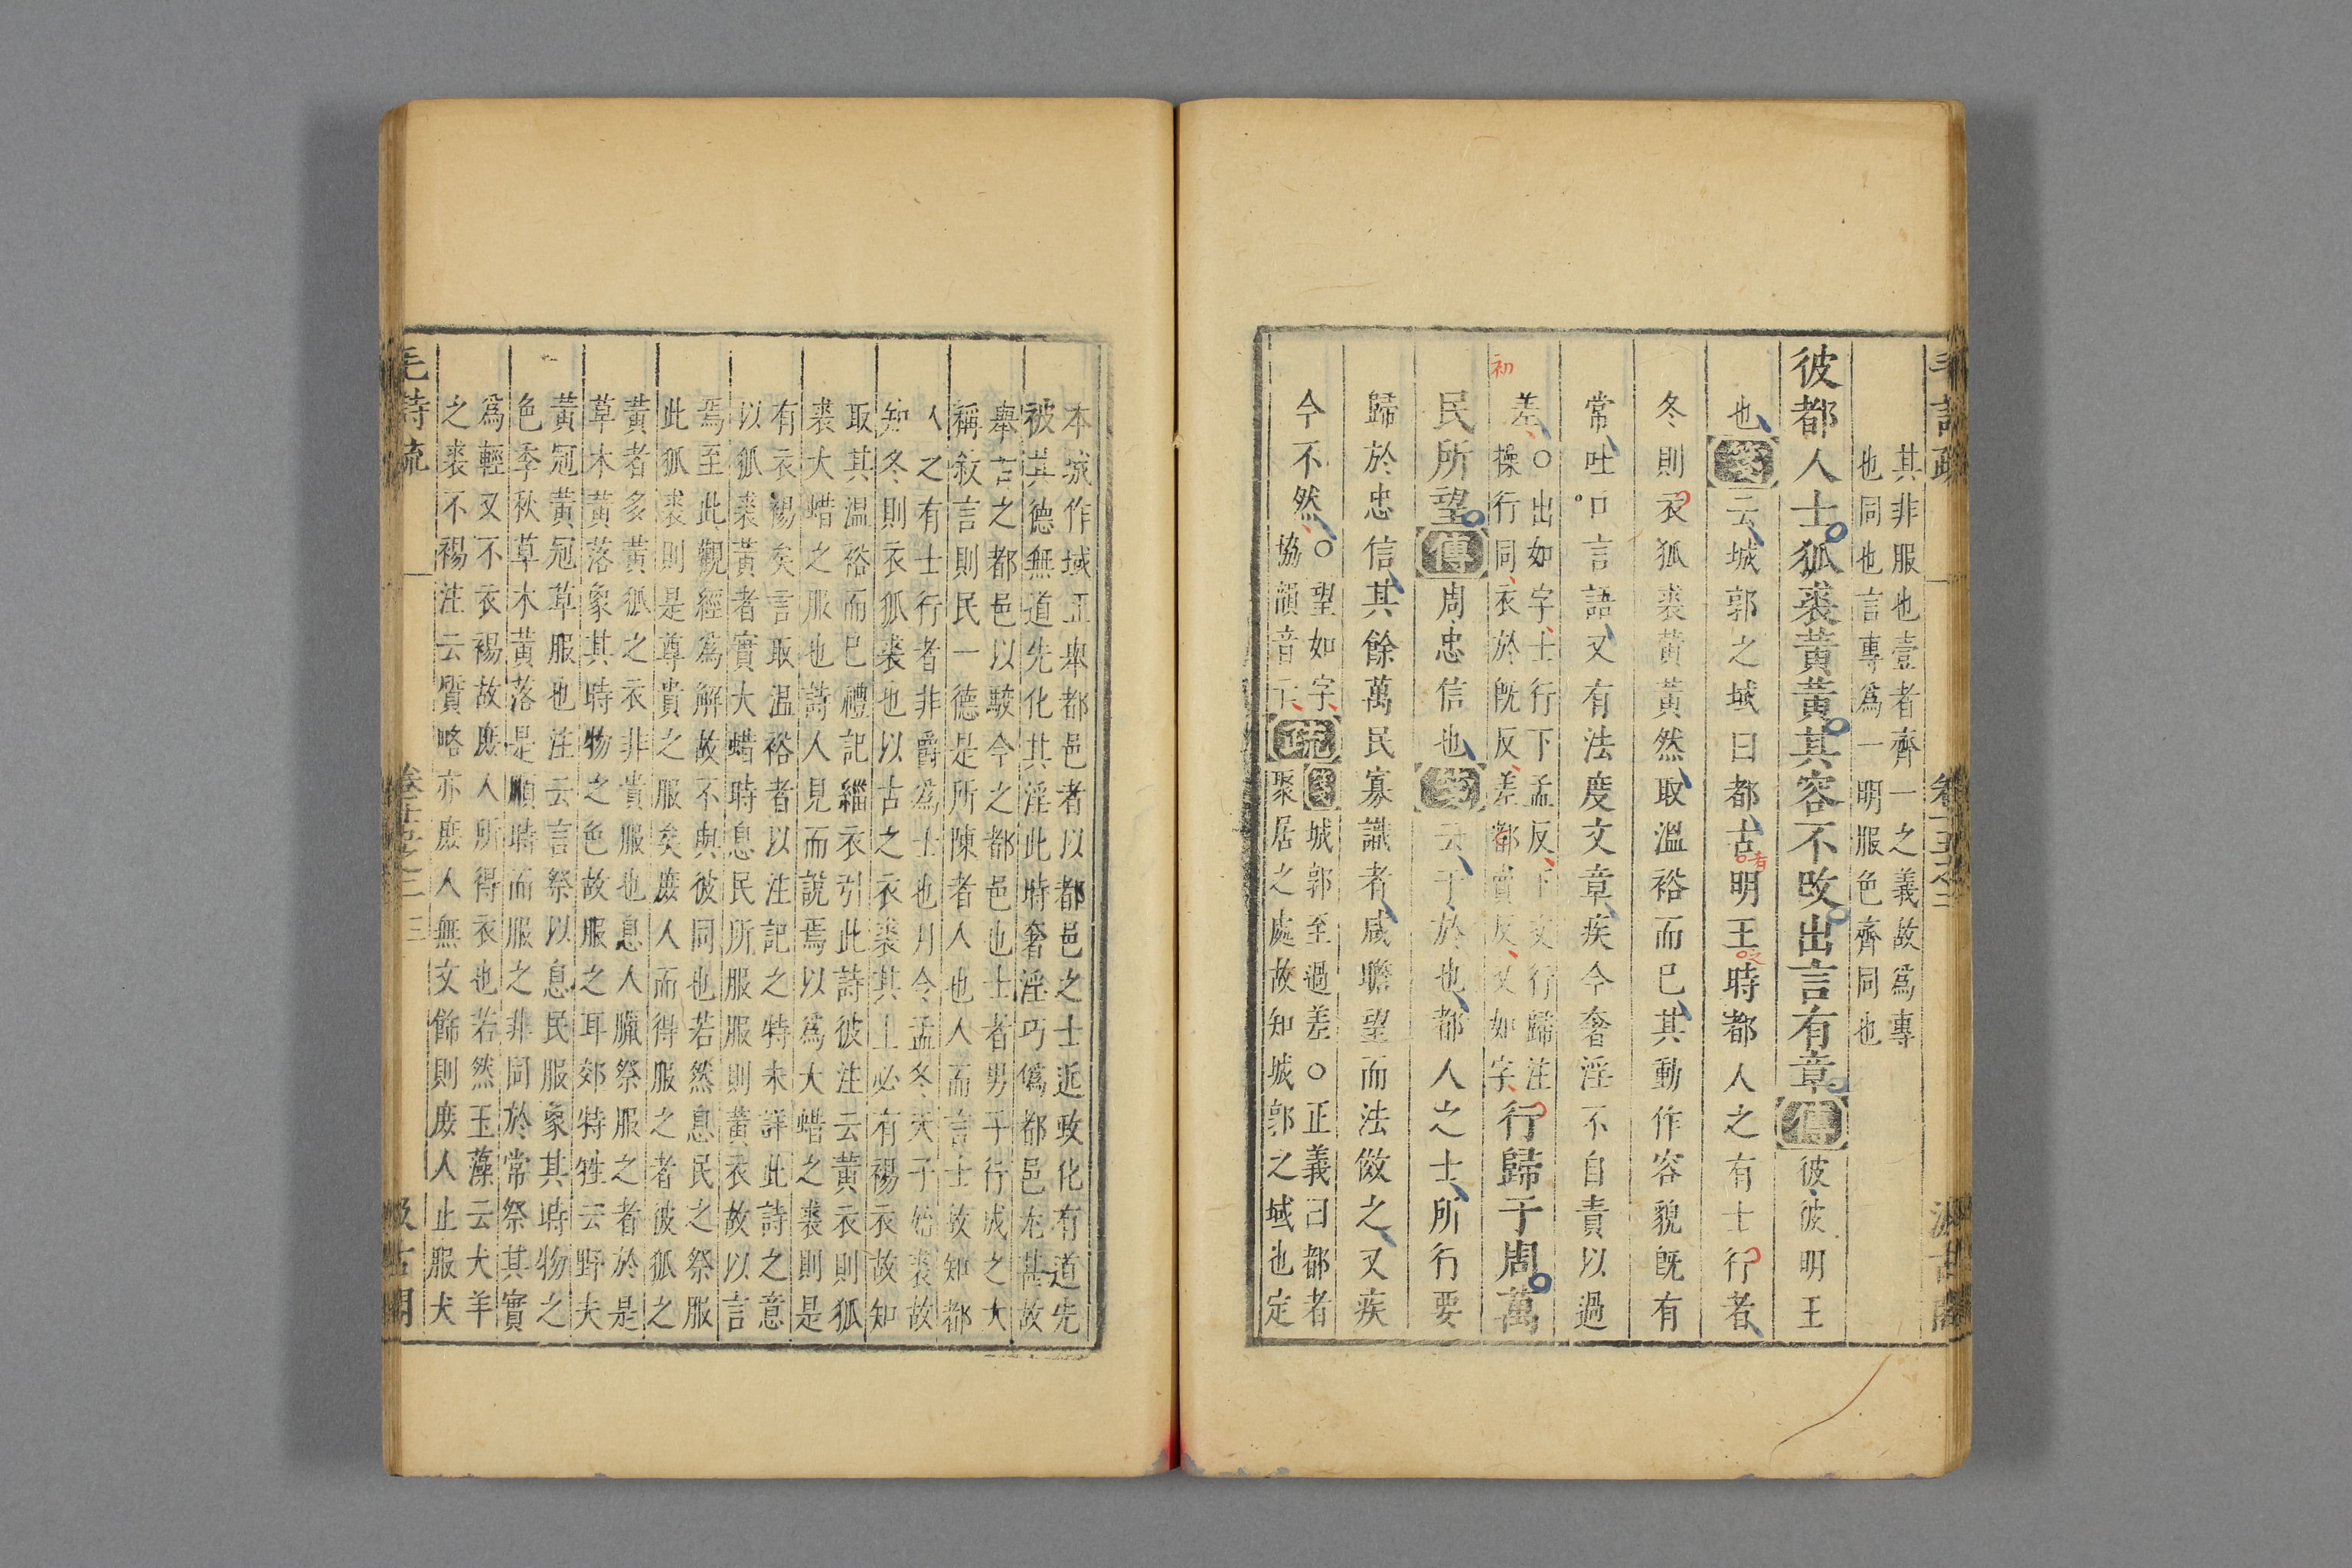 毛詩疏 卷十五之二 汲古閣
其非服也壹者齊一之義故爲專
也同也言專爲一明服色齊同也
彼都人士狐裘黃黃其容不改出言有章傳彼彼明王
也箋云城郭之域曰都古明王時都人之有士行者
冬則衣狐裘黃黃然取溫裕而已其動作容貌旣有
常吐口言語又有法度文章疾今奢淫不自責以過
差〇出如字士行下孟反下文行歸注
操行同衣於旣反差都賣反又如字行歸于周萬
初
者
之
民所望傳周忠信也箋云于於也都人之士所行要
歸於忠信其餘萬民寡識者咸瞻望而法傚之又疾
今不然〇望如字
協韻音亡疏箋城郭至過差〇正義曰都者
聚居之處故知城郭之域也定
本城作域正舉都邑者以都邑之士近政化有道先
被其德無道先化其淫此時奢淫巧僞都邑尤甚故
舉古之都邑以駮今之都邑也士者男子行成之大
稱敘言則民一德是所陳者人也人而言士故知都
人之有士行者非爵爲士也月令孟冬天子始裘故
知冬則衣狐裘也以古之衣裘其上必有裼衣故知
取其温裕而已禮記緇衣引此詩彼注云黃衣則狐
裘大蜡之服也詩人見而說焉以爲大蜡之裘則是
有衣裼矣言取温裕者以注記之特未詳此詩之意
以狐裘黃者實大蜡時息民所服服則黃衣故以言
焉至此觀經爲解故不與彼同也若然息民之祭服
此狐裘則是尊貴之服矣庶人而得服之者彼狐之
黃者多黃狐之衣非貴服也息人臘祭服之者於是
草木黃落象其時物之色故服之耳郊特牲云野夫
黃冠黃冠草服也注云言祭以息民服象其時物之
色季秋草木黃落是順時而服之非同於常祭其實
爲輕又不衣裼故庶人所得衣也若然玉藻云犬羊
之裘不裼注云質略亦庶人無文飾則庶人止服犬
毛詩疏 卷十五之二 三 汲古閣